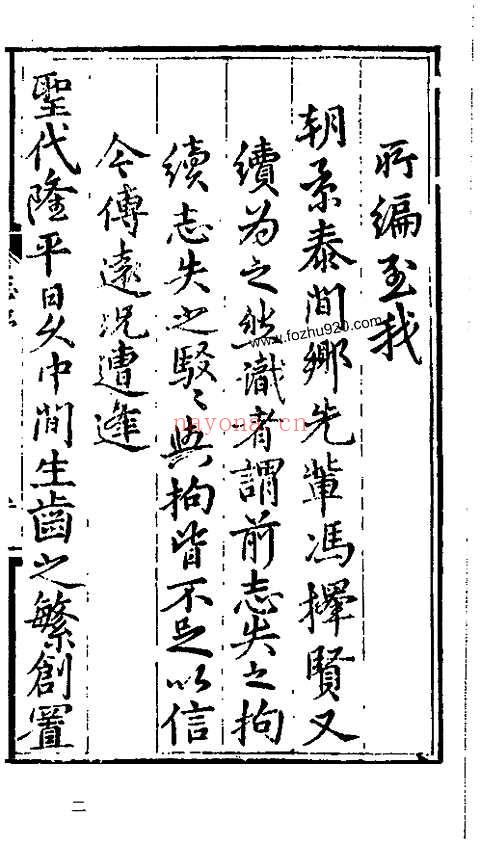 所編至我
朝景泰間鄉先輩馮擇賢又
續為之然識者謂前志失之拘
續志失之駁〻與拘皆不足以信
今傳遠況遭逢
聖代隆平日久中間生齒之繁創置
二
www.fozhu920.com
nayona.cn